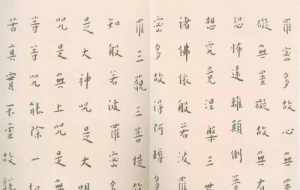 羅蜜多故心無
礙無罣礙故無有
恐怖遠離顛倒
想究竟涅槃三
諸佛依般若波
羅蜜多故得阿
羅三藐三菩提
知般若波羅蜜
是大神咒是大明
咒是無上咒是
等等咒能除一
苦真實不虛故